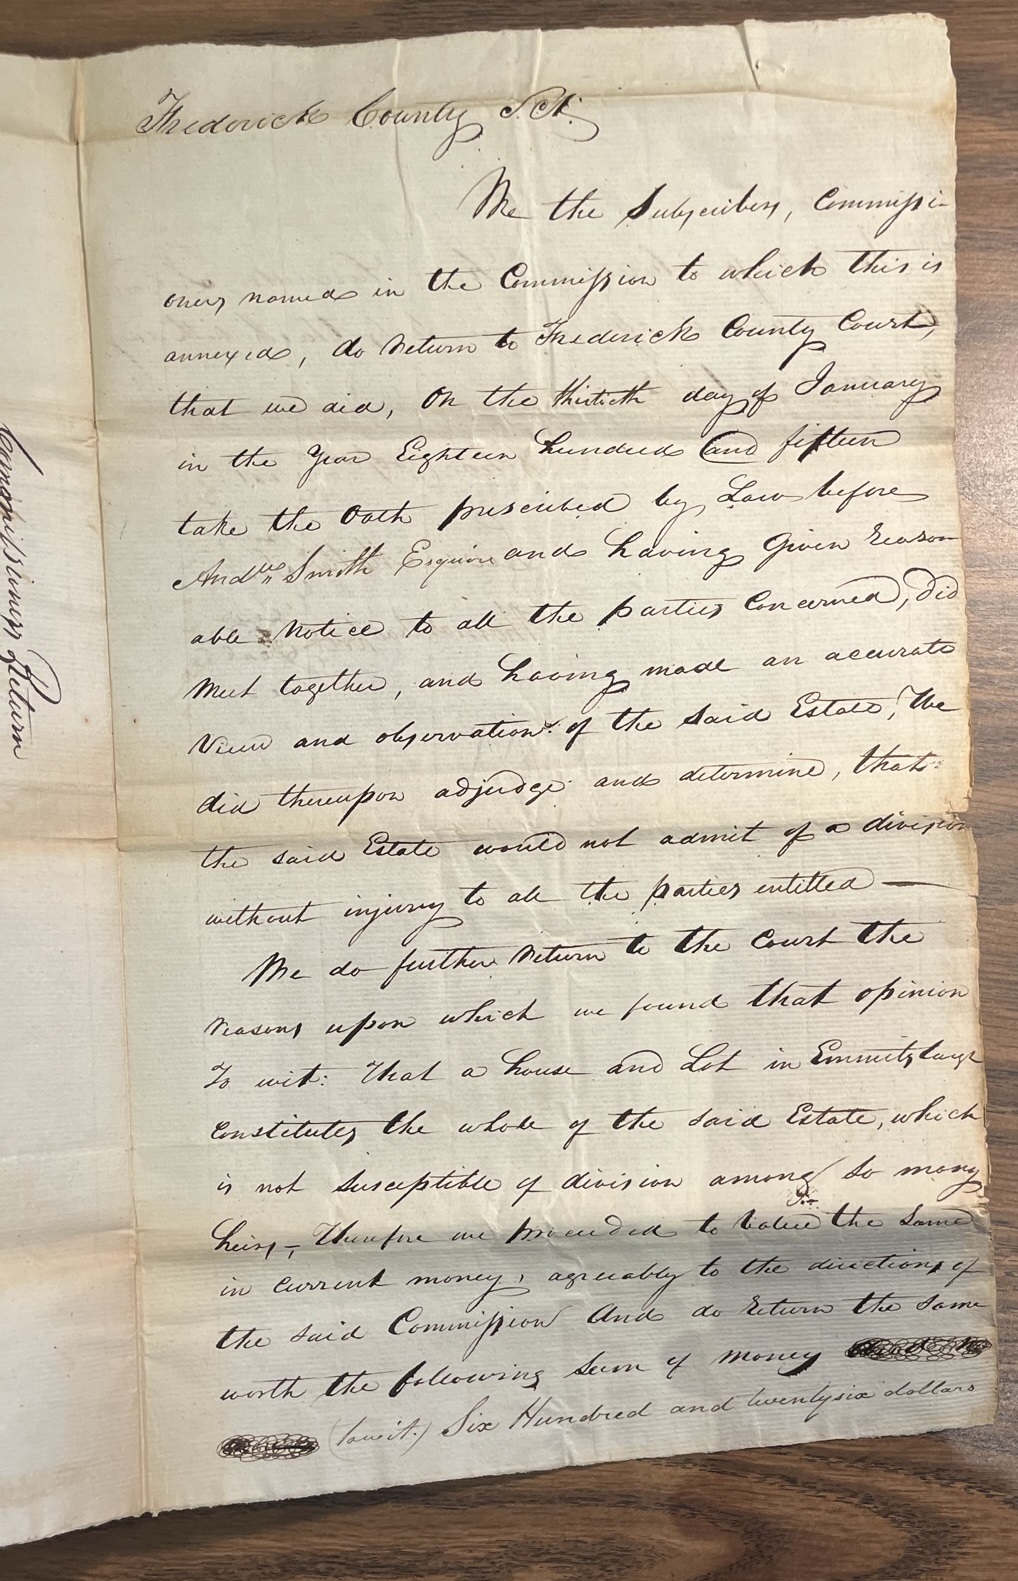 Frederick County Sct.
We the Subscribers, Commissi-
oners named in the Commission to which this is
annexed, do return to Frederick County Court,
that we did, On the thirtieth day of January
in the Year Eighteen hundred and fifteen
take the Oath prescribed by Law before
Andw Smith Esquire and having given reason
able Notice to all the parties Concerned, did
Meet together, and having made an accurate
View and observation of the said Estate, We
did thereupon adjudge and determine, that
the said Estate would not admit of a division
without injury to all the parties entitled —
We do further return to the Court the
reasons upon which we found that opinion
To wit: That a house and Lot in Emmitsburgh
Constitutes the whole of the said Estate, which
is not susceptible of division among so many
heirs,— Therefore we proceeded to Value the Same
in current money, agreeably to the directions of
the said Commission And do return the same
worth the following Sum of money
(towit.) Six Hundred and twentysix dollars
Commissioners Return